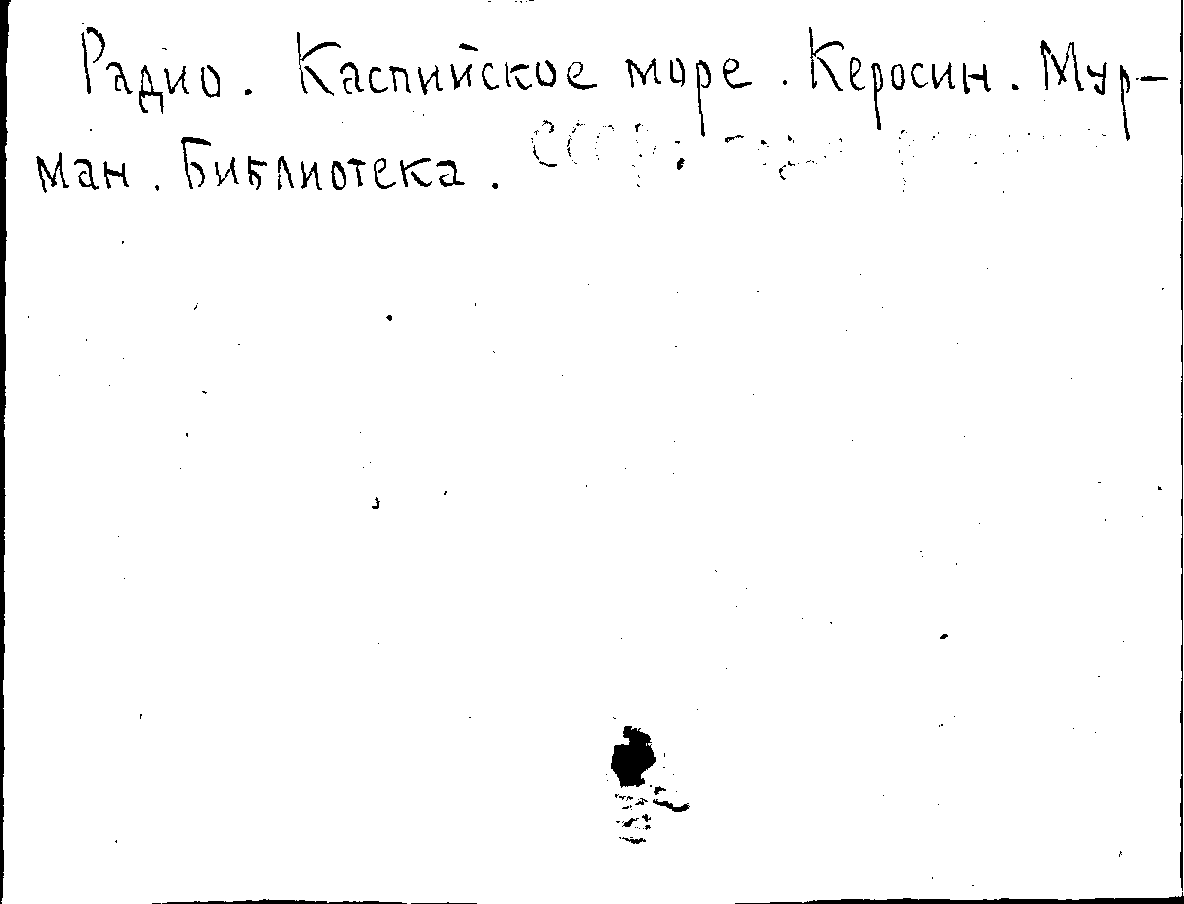 Радио. Каспийское море. Керосин. Мур-
ман. Библиотека. СССР.